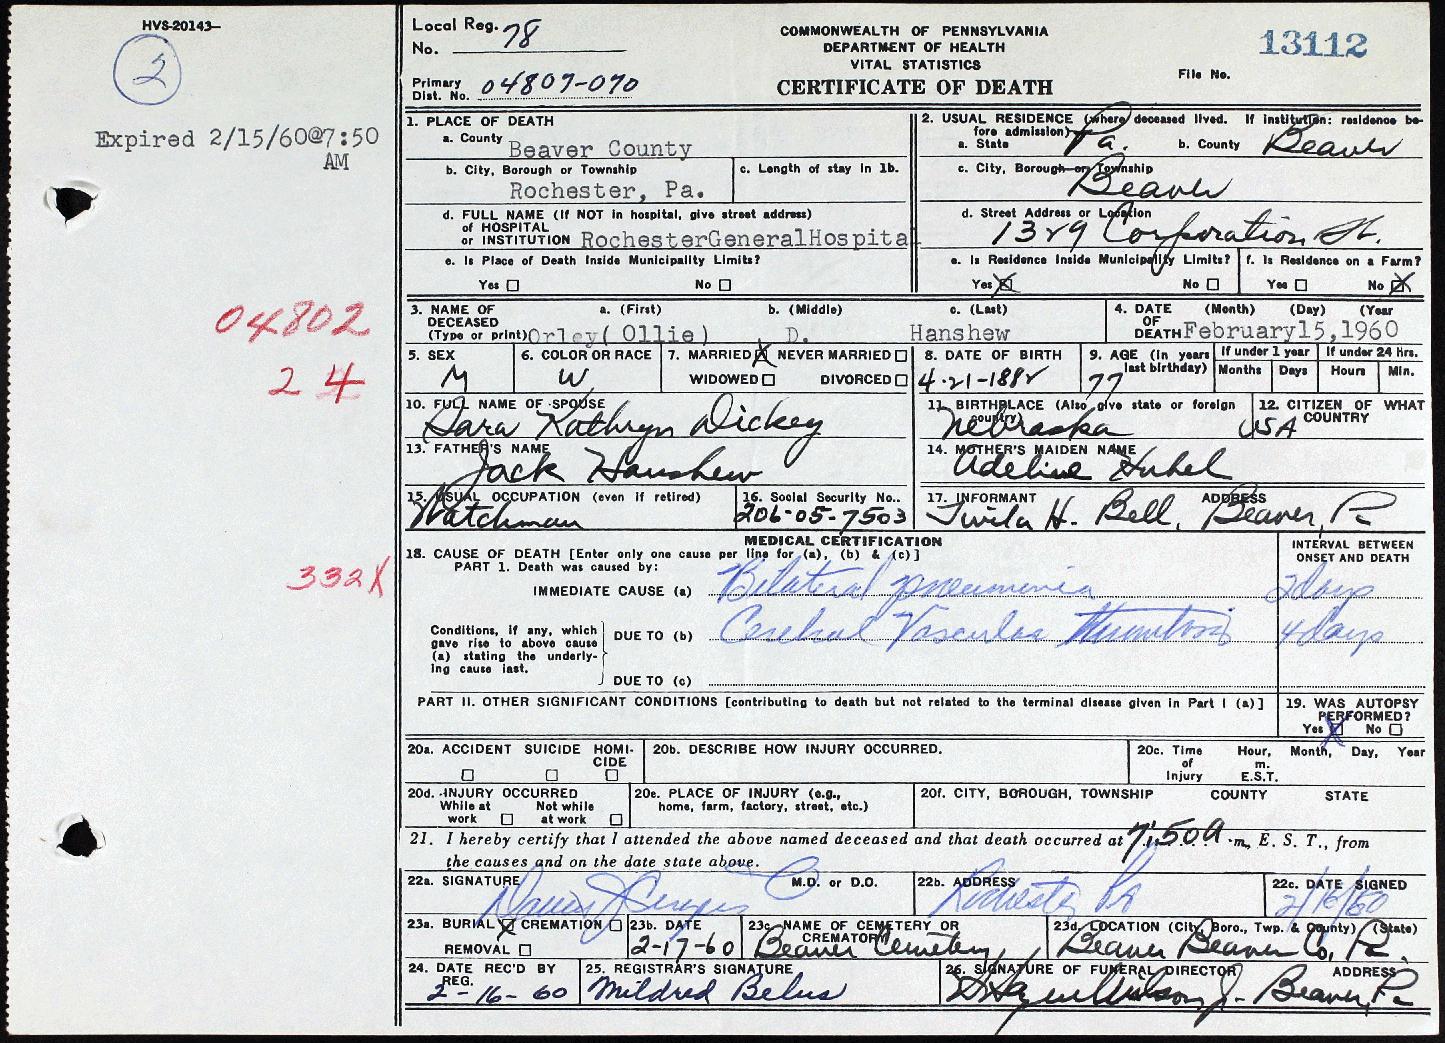 HVS-20143-
2
Expired 2/15/60@7:50
AM
04802
2 4
332X
Local Reg. No. 78
Primary Dist. No. 04807-070
COMMONWEALTH OF PENNSYLVANIA
DEPARTMENT OF HEALTH
VITAL STATISTICS
CERTIFICATE OF DEATH
File No. 13112
1. PLACE OF DEATH
a. County Beaver County
b. City, Borough or Township
Rochester, Pa.
c. Length of stay in 1b.
d. FULL NAME (If NOT in hospital, give street address)
of HOSPITAL
or INSTITUTION RochesterGeneralHospital
e. Is Place of Death Inside Municipality Limits?
Yes No
2. USUAL RESIDENCE (where deceased lived. If institution: residence be-
fore admission)
a. State Pa. b. County Beaver
c. City, Borough or Township
Beaver
d. Street Address or Location
1329 Corporation St.
e. Is Residence Inside Municipality Limits?
Yes X No
f. Is Residence on a Farm?
Yes No X
3. NAME OF DECEASED (Type or print) a. (First) b. (Middle) c. (Last)
Orley( Ollie) D. Hanshew
4. DATE OF DEATH (Month) (Day) (Year
February15,1960
5. SEX
M
6. COLOR OR RACE
W
7. MARRIED X NEVER MARRIED
WIDOWED DIVORCED
8. DATE OF BIRTH
4-21-1882
9. AGE (in years last birthday)
77
If under 1 year
Months Days
If under 24 hrs.
Hours Min.
10. FULL NAME OF SPOUSE
Sara Kathryn Dickey
11. BIRTHPLACE (Also give state or foreign country)
Nebraska
12. CITIZEN OF WHAT COUNTRY
USA
13. FATHER'S NAME
Jack Hanshew
14. MOTHER'S MAIDEN NAME
Adeline
15. USUAL OCCUPATION (even if retired)
Watchman
16. Social Security No..
206-05-7503
17. INFORMANT ADDRESS
Twila H. Bell, Beaver, Pa
MEDICAL CERTIFICATION
18. CAUSE OF DEATH [Enter only one cause per line for (a), (b) & (c)]
PART 1. Death was caused by:
INTERVAL BETWEEN
ONSET AND DEATH
IMMEDIATE CAUSE (a) Bilateral pneumonia 2 days
Conditions, if any, which
gave rise to above cause
(a) stating the underly-
ing cause last.
DUE TO (b) Cerebral Vascular Thrombosis 4 days
DUE TO (c)
PART II. OTHER SIGNIFICANT CONDITIONS [contributing to death but not related to the terminal disease given in Part I (a)]
19. WAS AUTOPSY
PERFORMED?
Yes X No
20a. ACCIDENT SUICIDE HOMI-
CIDE
20b. DESCRIBE HOW INJURY OCCURRED.
20c. Time of Injury Hour, Month, Day, Year
m.
E.S.T.
20d. INJURY OCCURRED
While at work Not while at work
20e. PLACE OF INJURY (e.g.,
home, farm, factory, street, etc.)
20f. CITY, BOROUGH, TOWNSHIP COUNTY STATE
21. I hereby certify that I attended the above named deceased and that death occurred at 7:50 a .m., E. S. T., from
the causes and on the date state above.
22a. SIGNATURE M.D. or D.O.
22b. ADDRESS
Rochester Pa
22c. DATE SIGNED
23a. BURIAL X CREMATION
REMOVAL
23b. DATE
2-17-60
23c. NAME OF CEMETERY OR CREMATORY
Beaver Cemetery
23d. LOCATION (City, Boro., Twp. & County) (State)
Beaver Beaver Co, Pa.
24. DATE REC'D BY REG.
2-16-60
25. REGISTRAR'S SIGNATURE
Mildred Belus
26. SIGNATURE OF FUNERAL DIRECTOR ADDRESS
Wilson Jr. Beaver, Pa